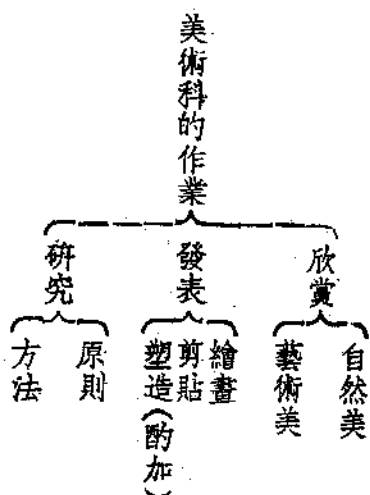 美術科的作業
欣賞
自然美
藝術美
發表
繪畫
剪貼
塑造(酌加)
研究
原則
方法